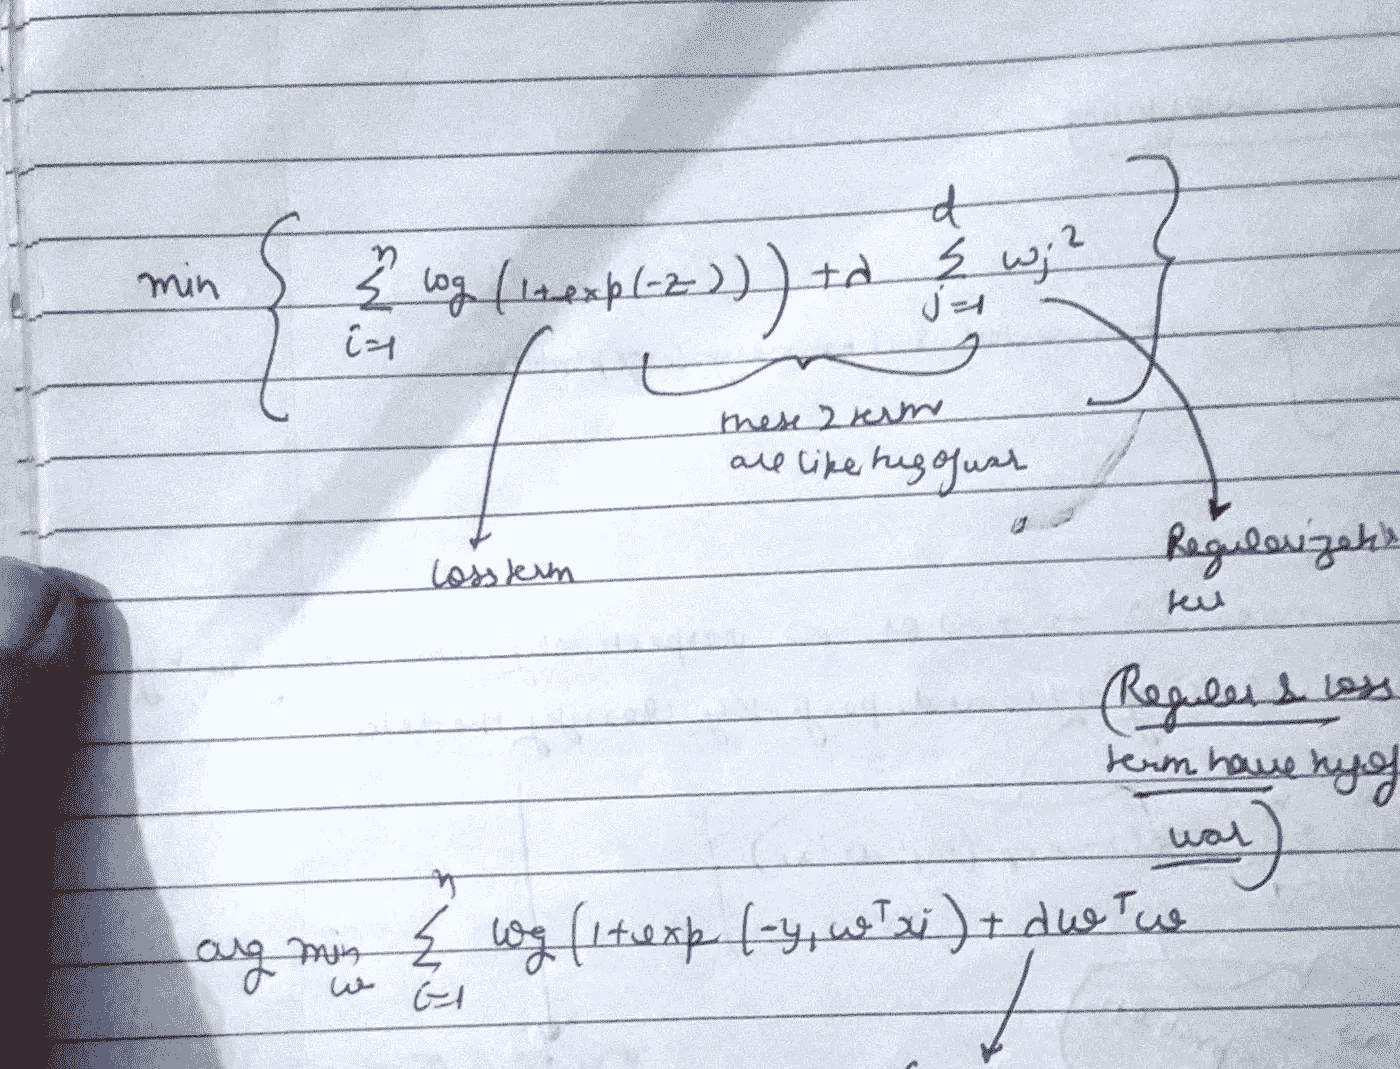 min { n Σ i=1 log (1+exp(-z))) + d d Σ j=1 wj² }
these 2 term
are like tug of war
loss term
Regularizati
ter
(Regular & loss
term have tug of
war)
arg min w n Σ i=1 log (1+exp (-yi wᵀxi) + d wᵀw